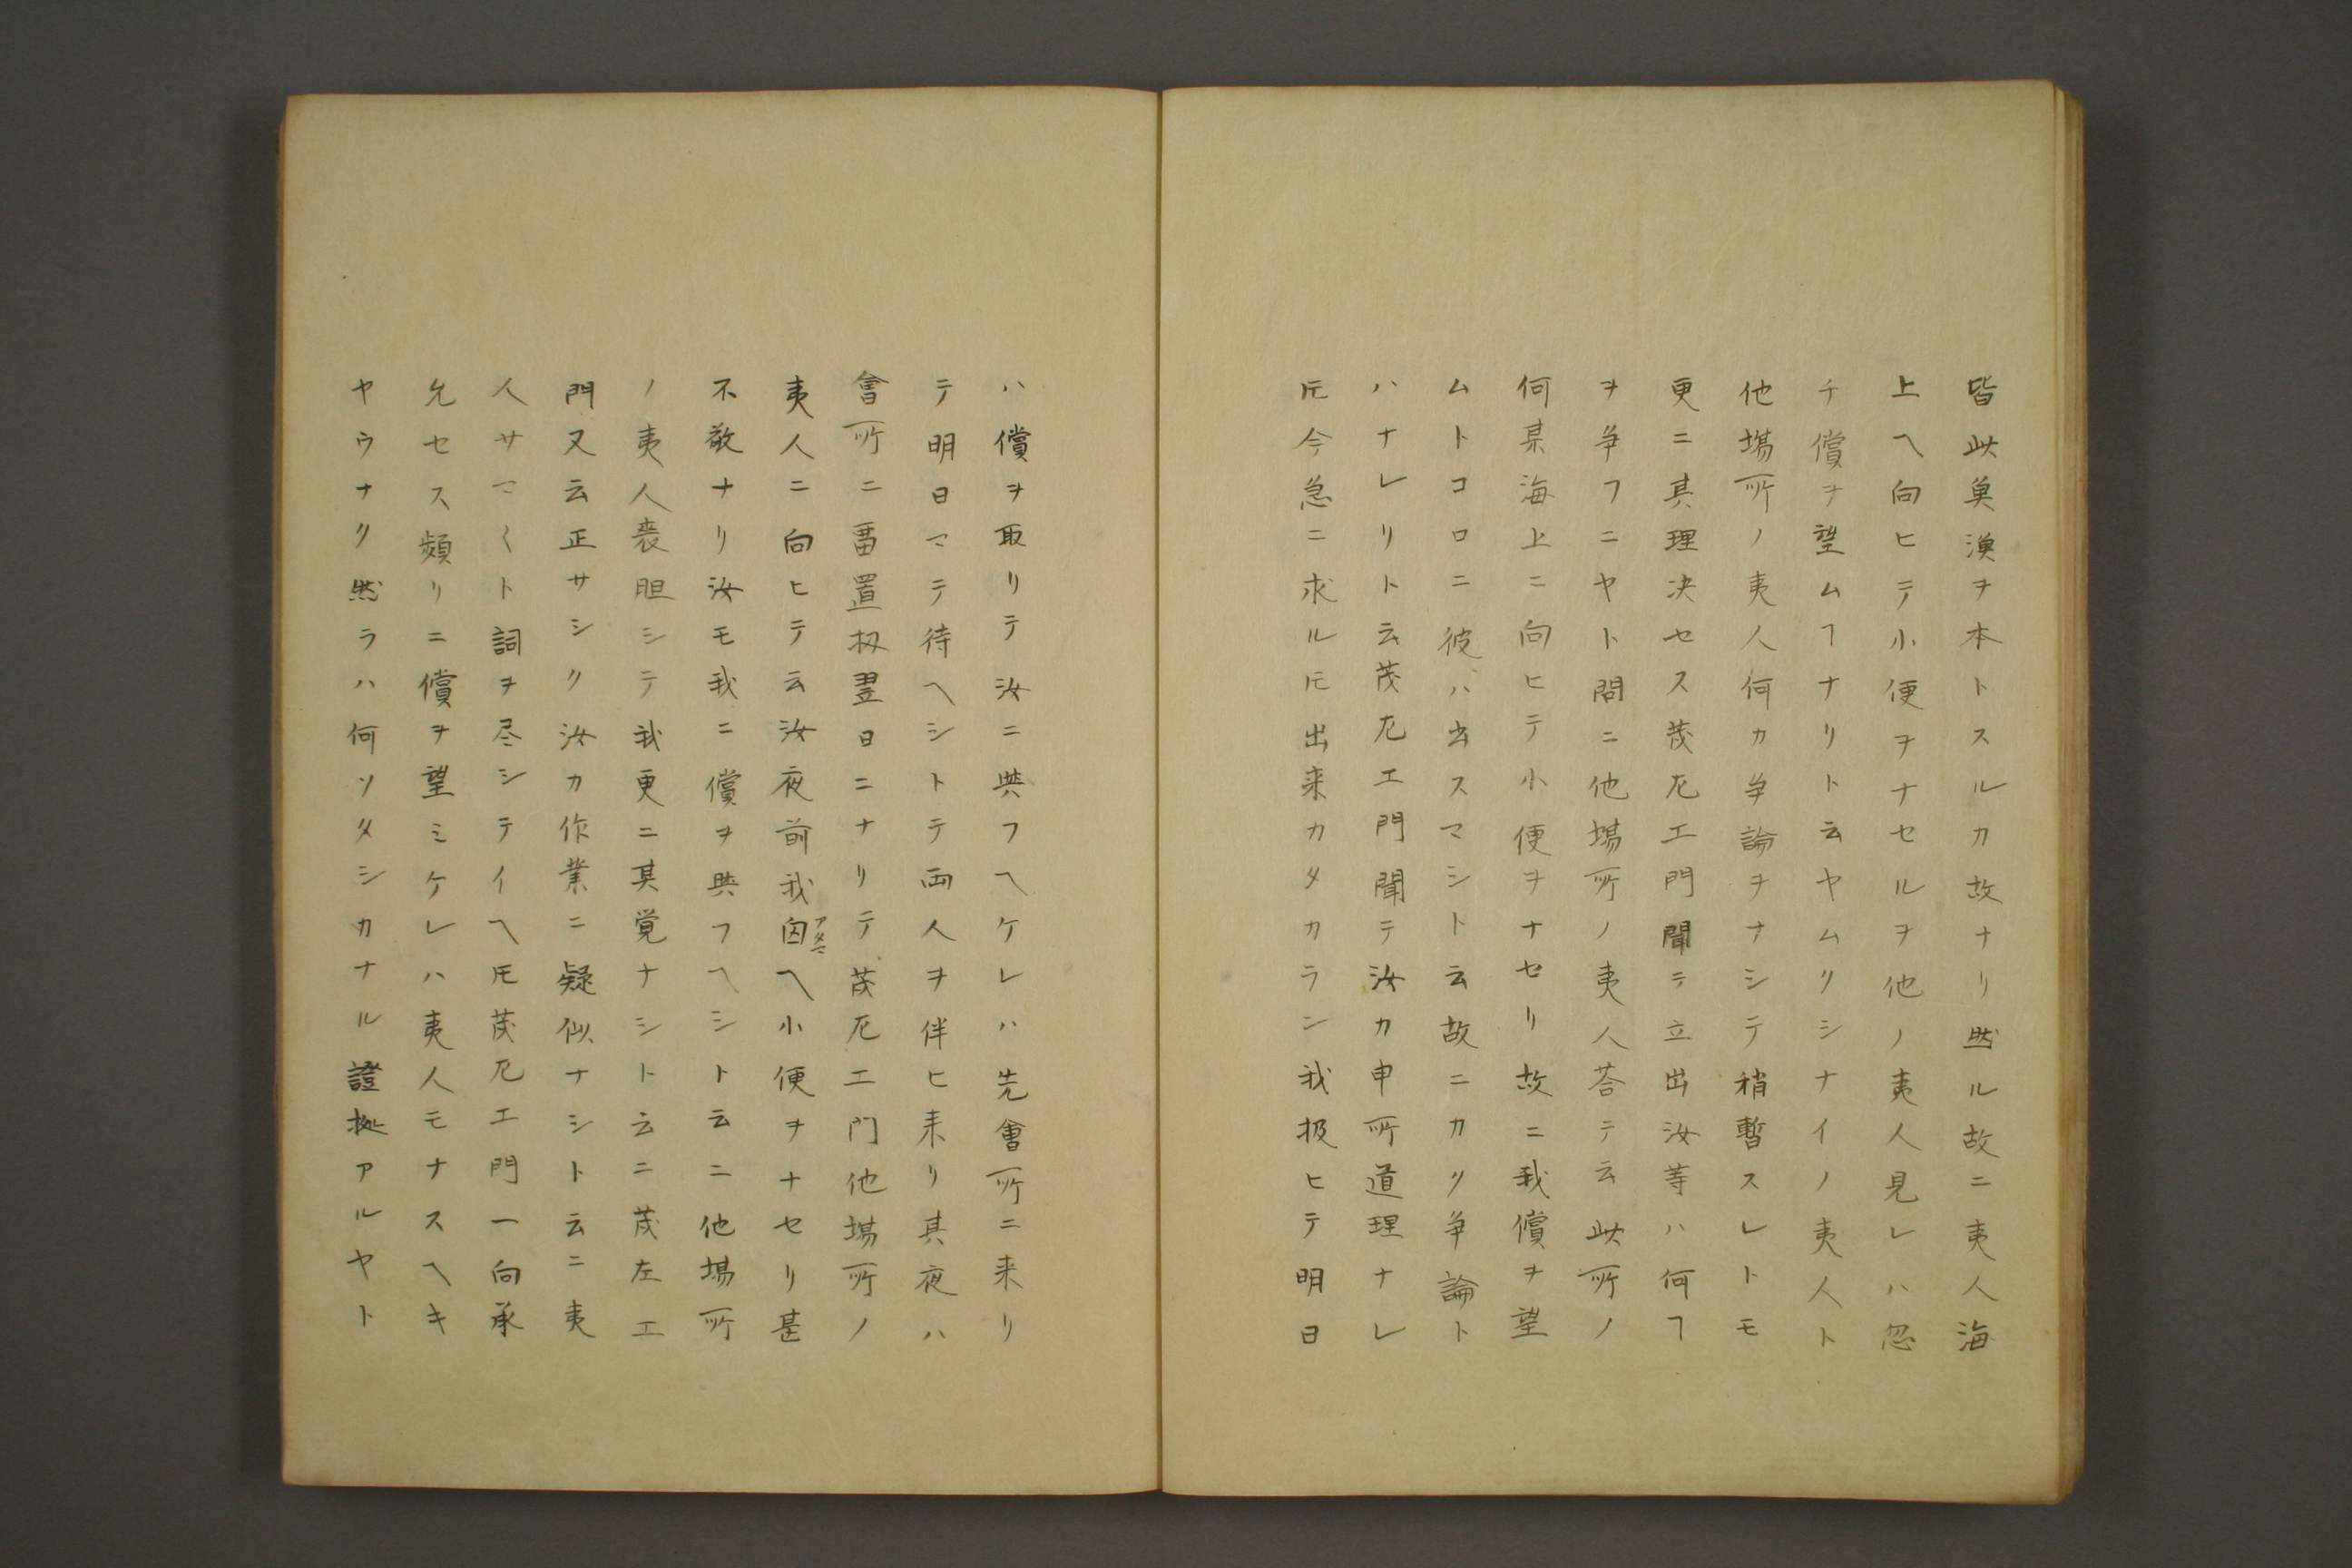 皆此魚漁ヲ本トスルカ故ナリ然ル故ニ夷人海
上ヘ向ヒテ小便ヲナセルヲ他ノ夷人見レハ忽
チ償ヲ望ムヿナリト云ヤムリシナイノ夷人ト
他場所ノ夷人何カ争論ヲナシテ稍暫スレトモ
更ニ其理决セス茂尢エ門聞テ立出汝等ハ何ヿ
ヲ争フニヤト問ニ他場所ノ夷人荅テ云此所ノ
何某海上ニ向ヒテ小便ヲナセリ故ニ我償ヲ望
ムトコロニ彼ハ出スマシト云故ニカク争論ト
ハナレリト云茂尢エ門聞テ汝カ申所道理ナレ
𪜈今急ニ求ル𪜈出来カタカラン我扱ヒテ明日
ハ償ヲ取リテ汝ニ與フヘケレハ先會所ニ来リ
テ明日マテ待ヘシトテ両人ヲ伴ヒ来リ其夜ハ
會所ニ畱置扨翌日ニナリテ茂尢エ門他場所ノ
夷人ニ向ヒテ云汝夜前我囟アタマヘ小便ヲナセリ甚
不敬ナリ汝モ我ニ償ヲ與フヘシト云ニ他場所
ノ夷人喪胆シテ我更ニ其覚ナシト云ニ茂左エ
門又云正サシク汝カ作業ニ疑似ナシト云ニ夷
人サマ〱ト詞ヲ尽シテイヘ𪜈茂尢エ門一向承
允セス頻リニ償ヲ望ミケレハ夷人モナスヘキ
ヤウナク然ラハ何ソタシカナル證拠アルヤト